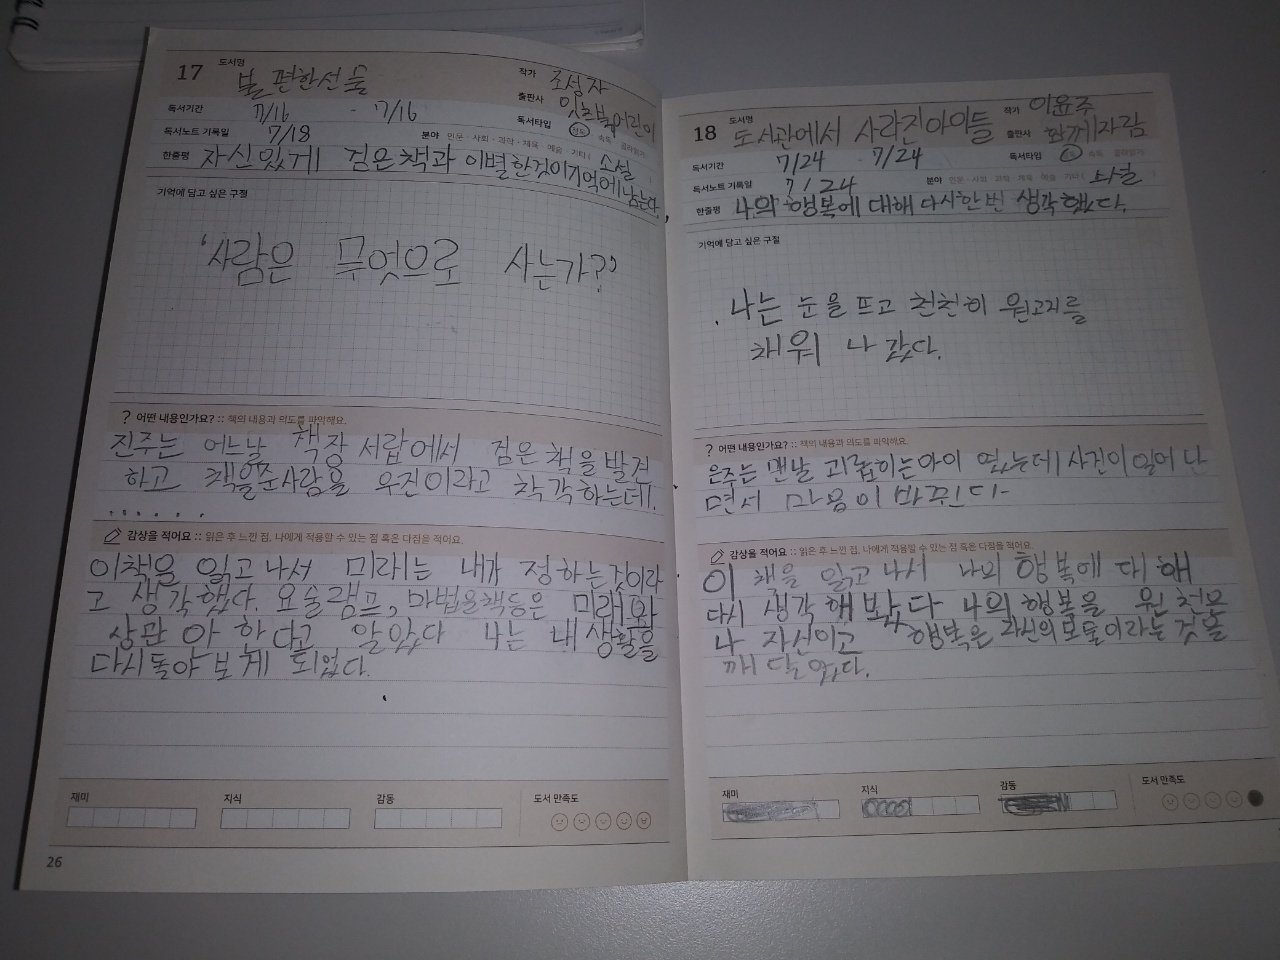 17 도서명 불편한선물 작가 조성자
출판사 잇츠북어린이
독서기간 7/16 - 7/16 독서타입 정독 · 속독 · 골라읽기
독서노트 기록일 7/18 분야 인문 · 사회 · 과학 · 체육 · 예술 · 기타( 소설
한줄평 자신있게 검은책과 이별한것이기억에남는다.
기억에 담고 싶은 구절
'사람은 무엇으로 사는가?'
? 어떤 내용인가요? :: 책의 내용과 의도를 파악해요.
진주는 어느날 책장 서랍에서 검은책을발견
하고 책을준사람을 우진이라고 착각하는데!
.......
감상을 적어요 :: 읽은 후 느낀 점, 나에게 적용할 수 있는 점 혹은 다짐을 적어요.
이책을 읽고나서 미래는 내가 정하는것이라
고 생각했다. 요술램프, 마법을책등은 미래와
상관 아 한다고 알았다 나는 내생활을
다시돌아보게 되었다.
재미 지식 감동 도서 만족도
26
18 도서명 도서관에서 사라진아이들 작가 이윤주
출판사 함께자람
독서기간 7/24 - 7/24 독서타입 속독 · 골라읽기
독서노트 기록일 7/24 분야 인문 · 사회 · 과학 · 체육 · 예술 · 기타( 소설
한줄평 나의 행복에 대해 다시한번 생각했다.
기억에 담고 싶은 구절
나는 눈을 뜨고 천천히 원고지를
채워 나 갔다.
? 어떤 내용인가요? :: 책의 내용과 의도를 파악해요.
은주는 맨날 괴롭히는아이 였는데! 사건이 일어 난
면서 마음이 바뀐다
감상을 적어요 :: 읽은 후 느낀 점, 나에게 적용할 수 있는 점 혹은 다짐을 적어요.
이 책을 읽고나서 나의 행복에 대해
다시 생각 해 봤다 나의 행복을 원천은
나 자신이고 행복은 자신의보물이라는 것을
깨달았다.
재미 지식 감동 도서 만족도